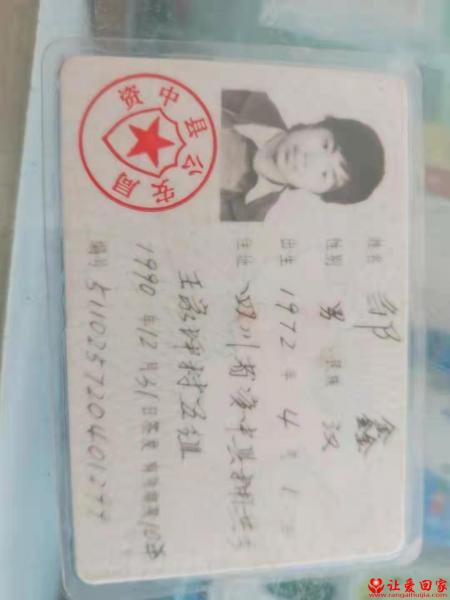 姓名 邹 鑫
性别 男 民族 汉
出生 1972 年 4 月 1 日
住址 四川省资中县
村五组
1990 年 12 月 31 日签发 有效期限10年
编号 511025720401277
资中县公安局
让爱回家
www.rangaihuijia.com